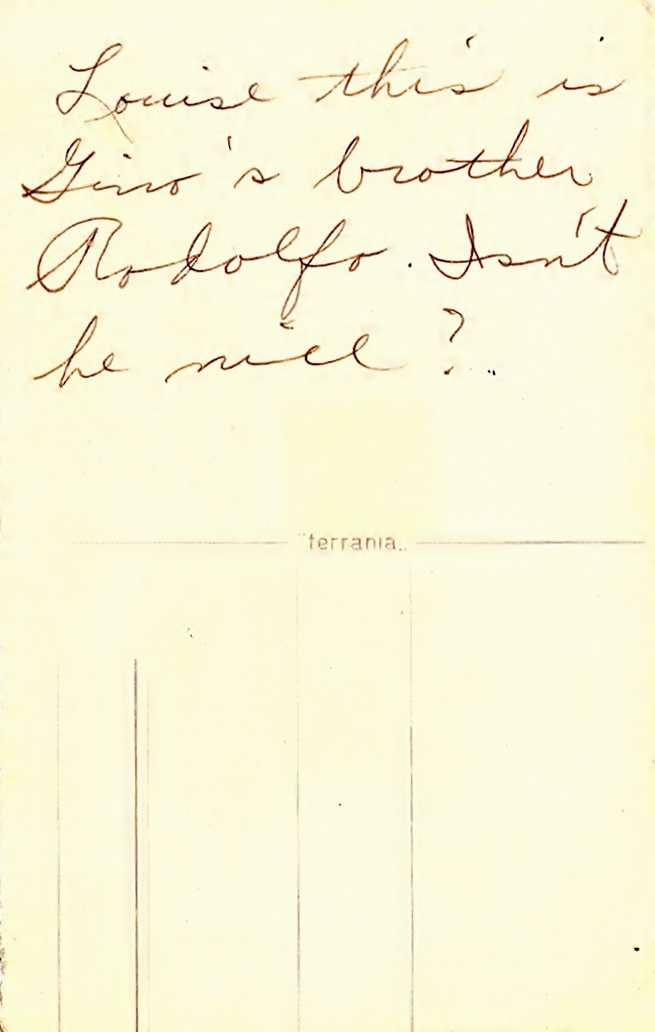 Louise this is
Gino's brother
Rodolfo. Isn't
he nice?
"ferrania"